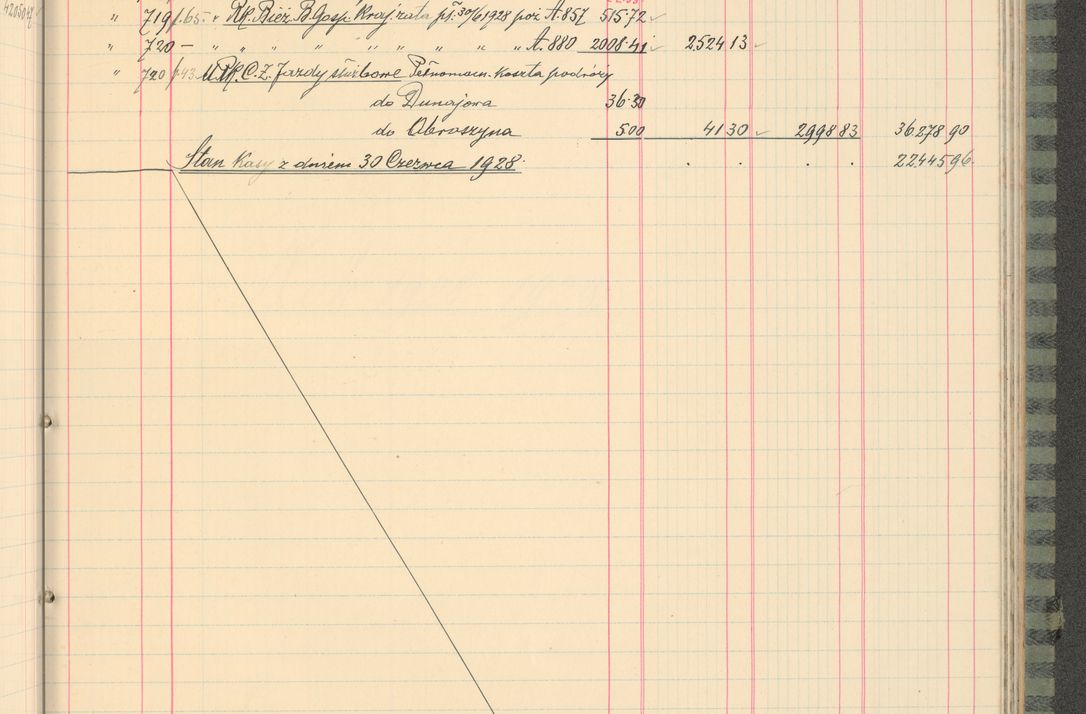 " 719 f.65. " Rk. Bież. B. Gosp. Kraj. rata pł. 30/6 1928 poz A.857 515·72
" 720 — " " " " " " " " " " A.880 2008·41 2524 13
" 720 f.43 Jazdy służbowe Koszta podróży
do Dunajowa 36·30
do Obroszyna 5.00 41 30 2998 83 36.278 90
Stan Kasy z dniem 30 Czerwca 1928· . . . 22445 96